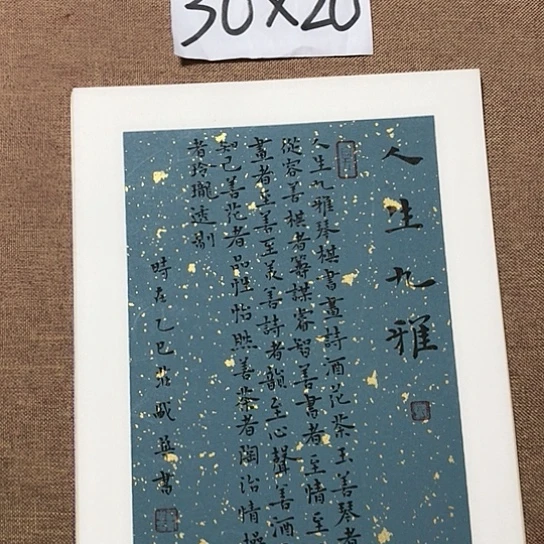 30×20
人生九雅
人生九雅琴棋書畫詩酒花茶玉善琴者
從容善棋者籌謀睿智善書者至情至
畫者至善至美善詩者韻至心聲善酒
知己善花者品性怡然善茶者陶冶情操
者玲瓏透剔
時在乙巳莊成益書